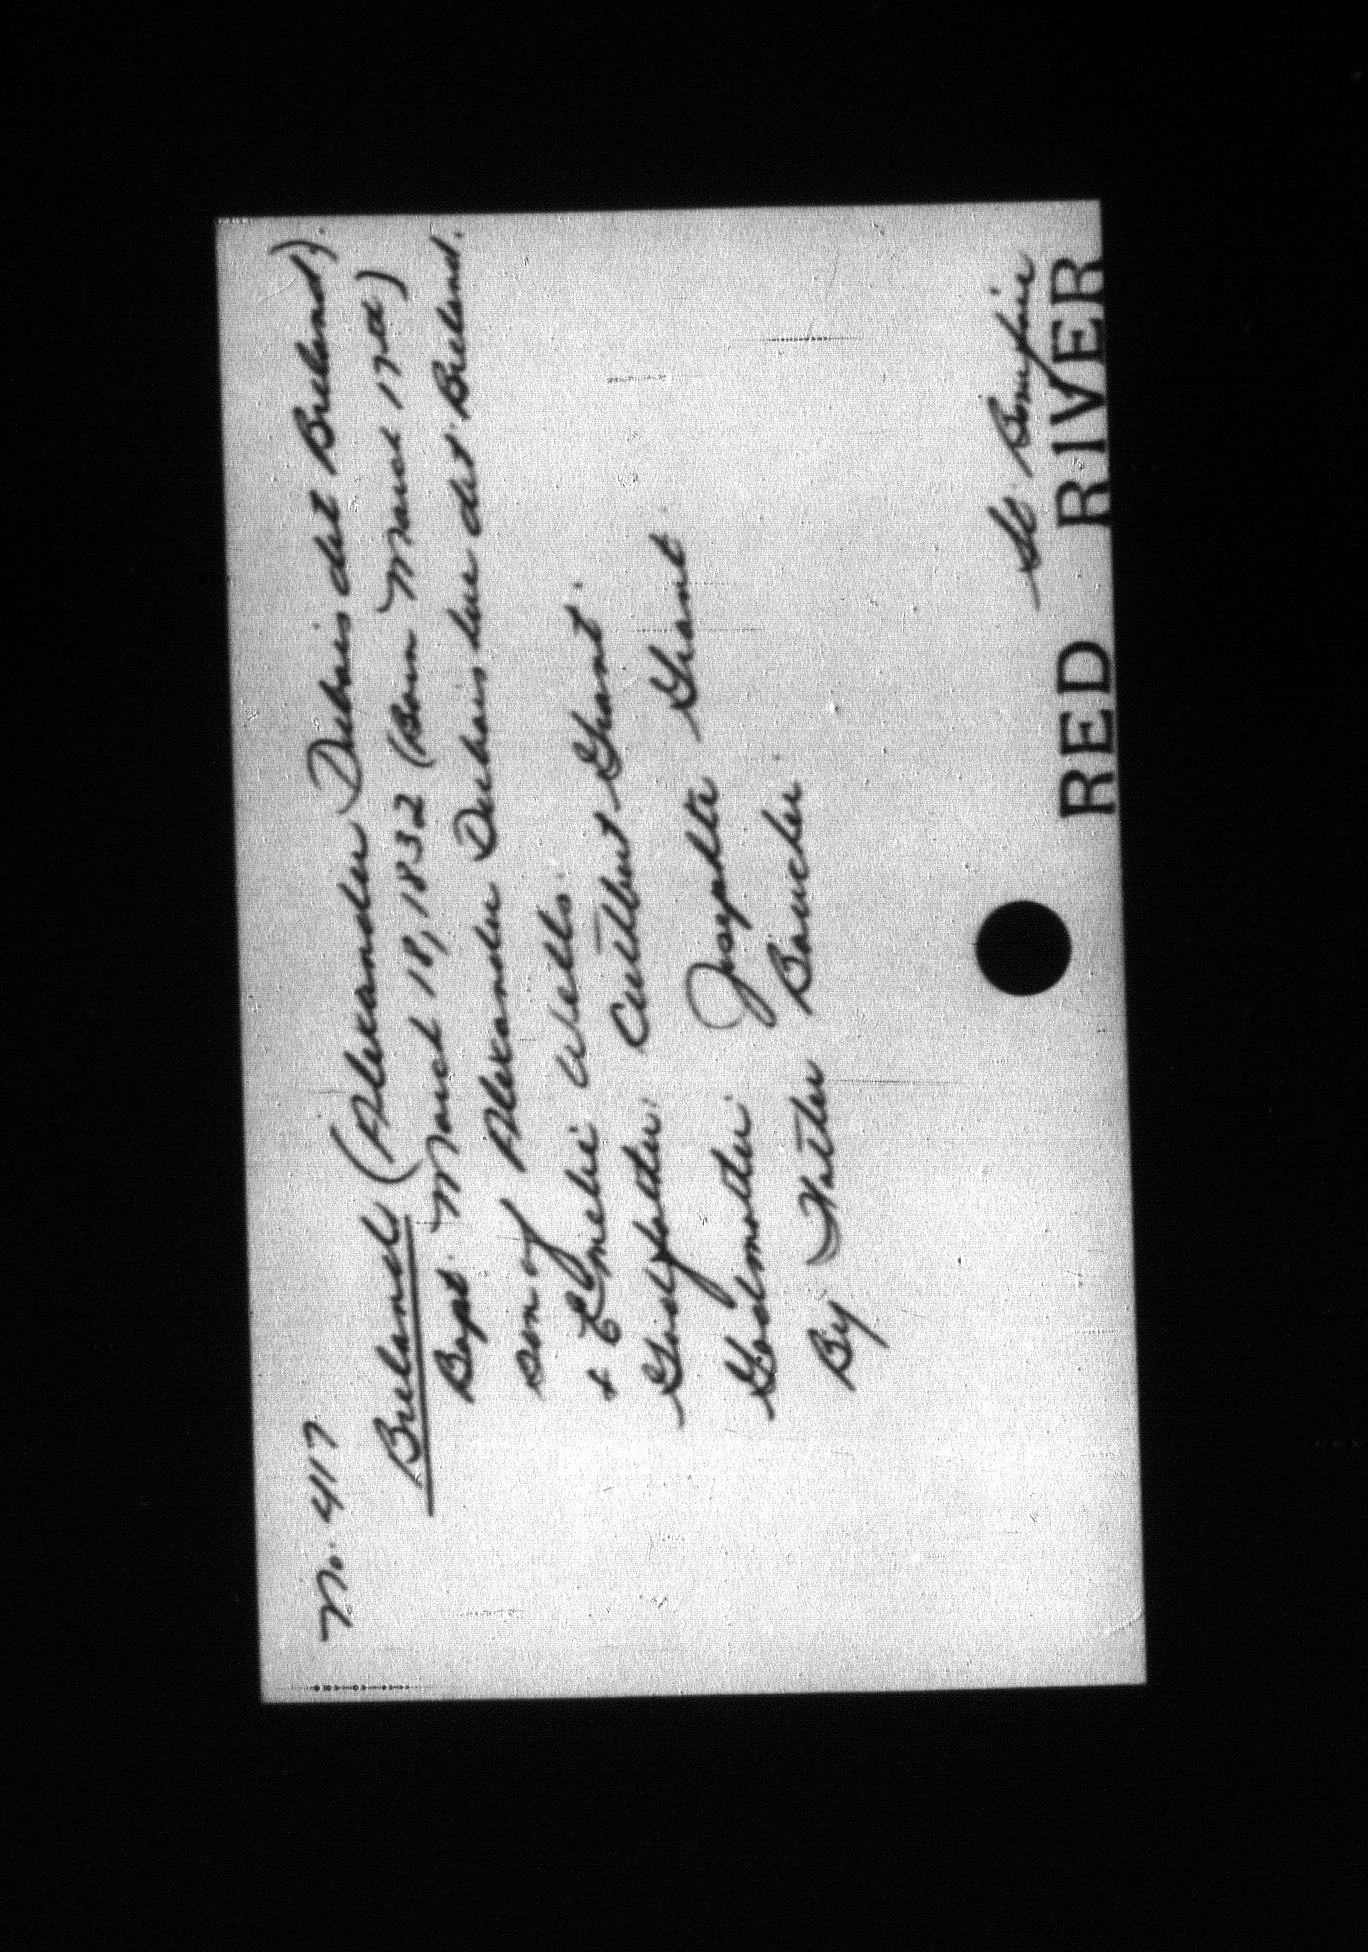 No. 417
Breland (Alexander Dubois dit Breland).
Bapt. March 18, 1832 (Born March 17th)
Son of Alexander Dubois dit Breland.
& Emelie Wells.
Godfather: Cuthbert Grant.
Godmother: Josephte Grant
By Father Boucher.
St Boniface
RED RIVER